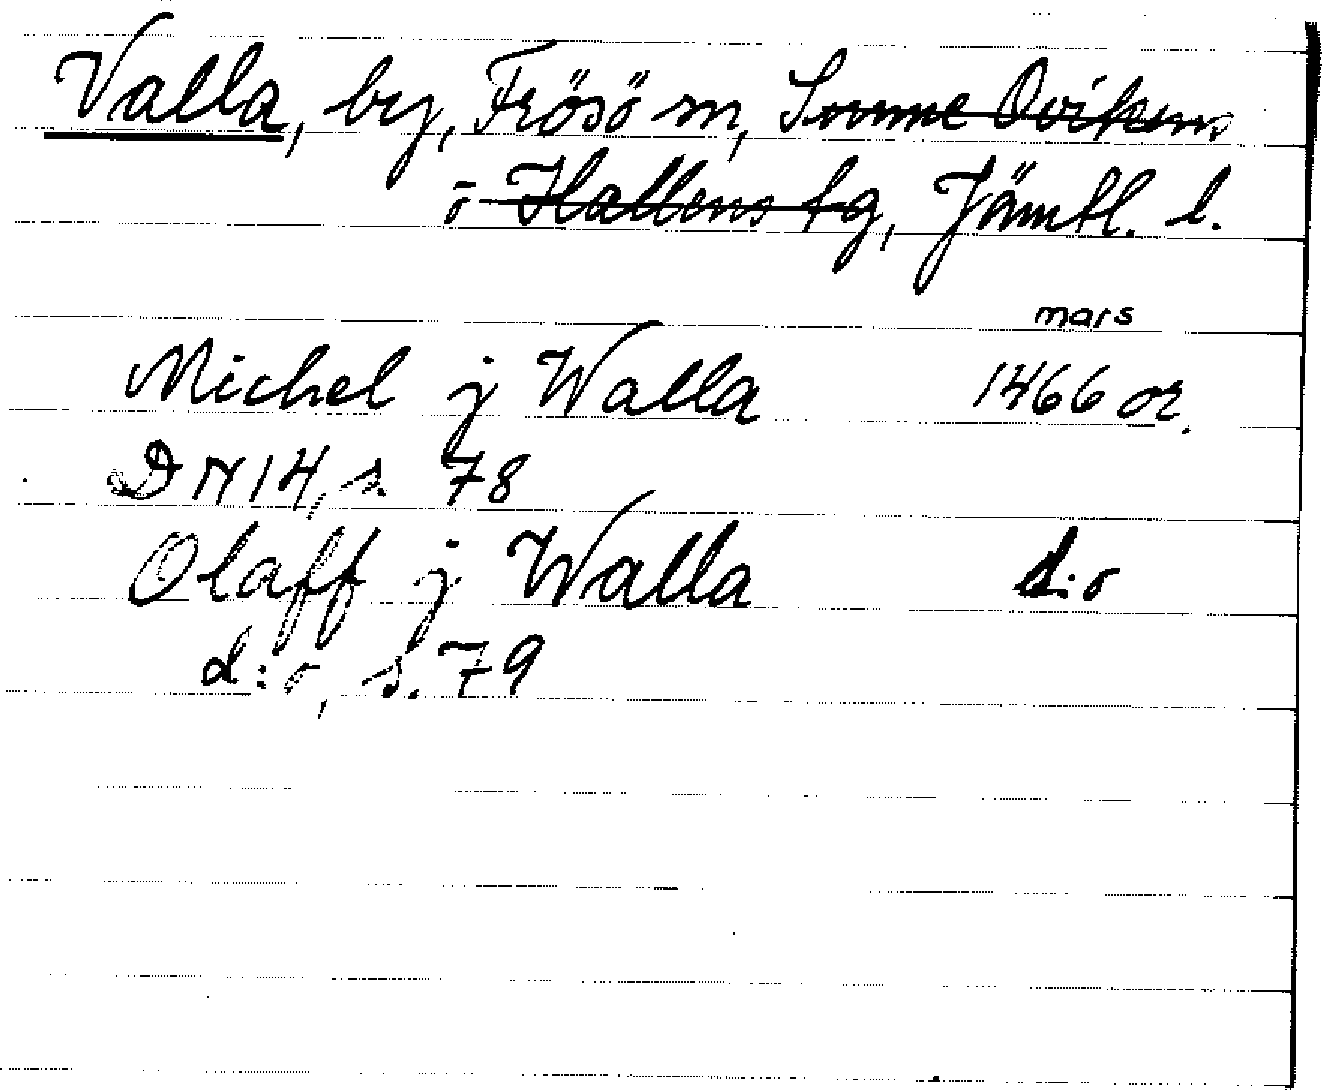 Valla, by, Frösö sn, Sunne Ovikens
o Hallens tg, Jämtl. l.
mars
Michel j Walla 1466 or.
DN 14, s. 78
Olaff j Walla d:o
d:o, s. 79